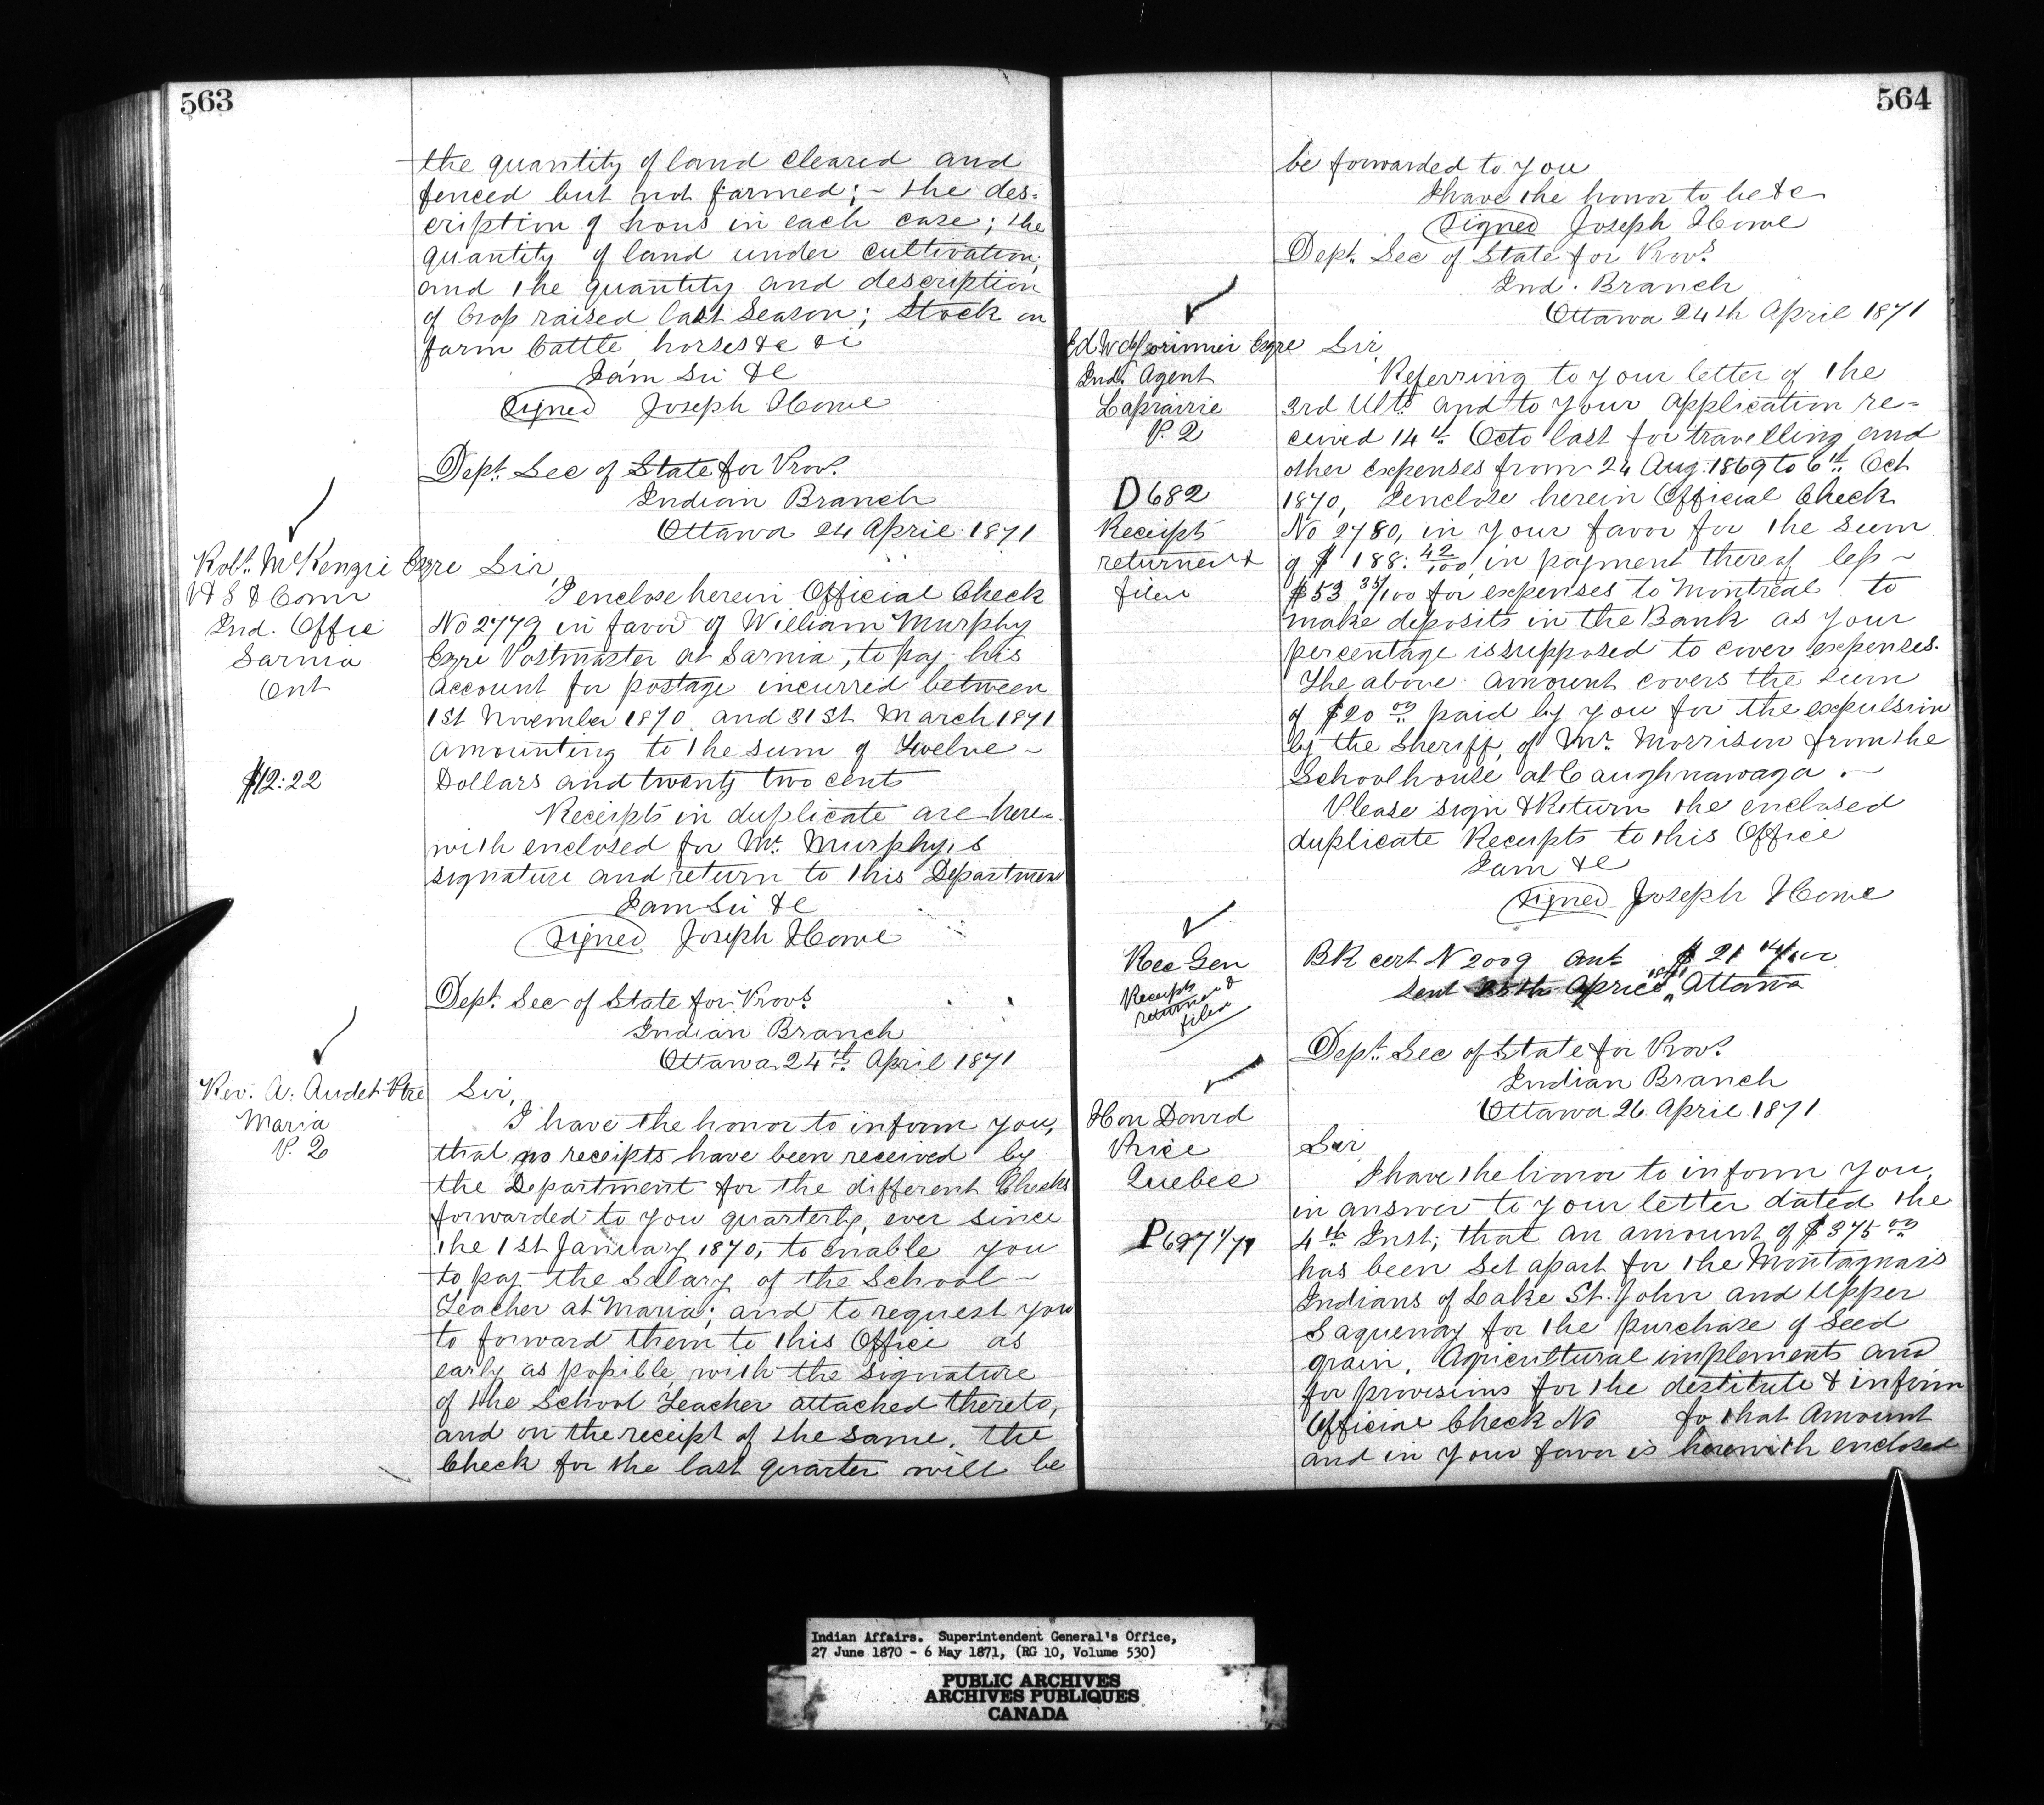 563
the quantity of land cleared and
fenced but not farmed; ~ the des-
cription of hous in each case; the
quantity of land under cultivation;
and the quantity and description
of Crop raised last Season; Stock on
farm Cattle, horses &c &c
I am Sir &c
Signed Joseph Howe
Dept. Sec of State for Provs.
Indian Branch
Ottawa 24 April 1871
Robt. McKenzie Esqre
V S & Comr
Ind. Offic
Sarnia
Ont
$12:22
Sir,
I enclose herein Official Check
No 2779 in favor of William Murphy
Esqre Postmaster at Sarnia, to pay his
account for postage incurred between
1st November 1870 and 31st March 1871
amounting to the sum of Twelve ~
Dollars and twenty two cents
Receipts in duplicate are here-
with enclosed for Mr. Murphy,s
signature and return to this Department
I am Sir &c
Signed Joseph Howe
Dept. Sec of State for Provs.
Indian Branch
Ottawa 24th April 1871
Rev: A. Audet Ptre
Maria
P. Q
Sir,
I have the honor to inform you,
that no receipts have been received by
the Department for the different Checks
forwarded to you quarterly, ever since
the 1st January 1870, to enable you
to pay the Salary of the School ~
Teacher at Maria; and to request you
to forward them to this Office as
early as possible, with the signature
of the School Teacher attached thereto,
and on the receipt of the same, the
Check for the last quarter will be
564
be forwarded to you
I have the honor to be &c
Signed Joseph Howe
Dept. Sec of State for Provs.
Ind. Branch
Ottawa 24th April 1871
Ed W deLorimier Esqre
Ind. Agent
Laprairie
P. Q
D 682
Receipts
returned &
filed
Sir,
Referring to your letter of the
3rd Ulto. and to your application re-
ceived 14th Octo last for travelling and
other expenses from 24 Aug. 1869 to 6th Oct
1870, I enclose herein Official Check
No 2780, in your favor for the sum
of $ 188: 42/100 in payment thereof less ~
$53 35/100 for expenses to Montreal to
make deposits in the Bank as your
percentage is supposed to cover expenses.
The above amount covers the sum
of $20 00 paid by you for the expulsion
by the Sheriff, of Mr. Morrison from the
Schoolhouse at Caughnawaga. ~
Please sign & Return the enclosed
duplicate Receipts to this Office
I am &c
Signed Joseph Howe
Rec Gen
Receipts
returned &
filed
BK cert N 2009 amt $ 21 14/100
Sent 25th April 1871 " Ottawa
Dept. Sec of State for Provs.
Indian Branch
Ottawa 26 April 1871
Hon David
Price
Quebec
P697 1/71
Sir
I have the honor to inform you,
in answer to your letter dated the
4th Inst; that an amount of $375 00
has been set apart for the Montagnais
Indians of Lake St. John and Upper
Saguenay for the purchase of Seed
grain, Agricultural implements and
for provisions for the destitute & infirm
Official Check No fo that Amount
and in your favor is herewith enclosed
Indian Affairs. Superintendent General's Office,
27 June 1870 - 6 May 1871, (RG 10, Volume 530)
PUBLIC ARCHIVES
ARCHIVES PUBLIQUES
CANADA